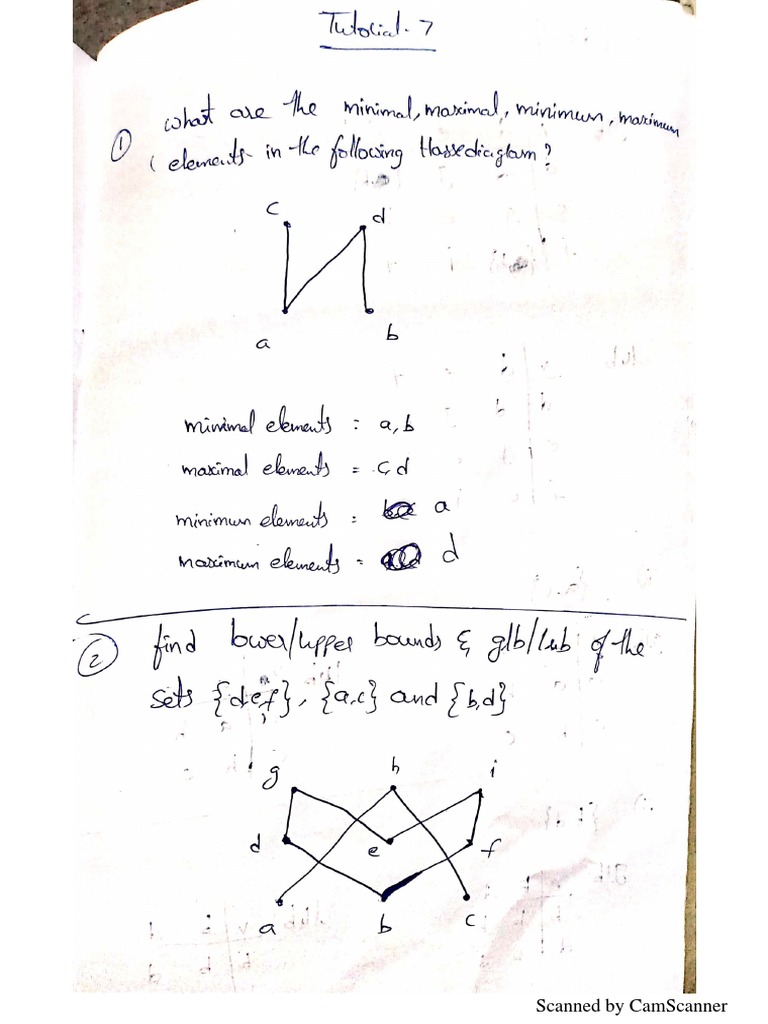 Tutorial-7
① what are the minimal, maximal, minimum, maximum
elements in the following Hasse diaglam?
c d
a b
minimal elements : a, b
maximal elements = c, d
minimum elements : a
maximum elements = d
② find lower/upper bounds & glb/lub of the
sets {d,e,f}, {a,c} and {b,d}
g h i
d e f
a b c
Scanned by CamScanner